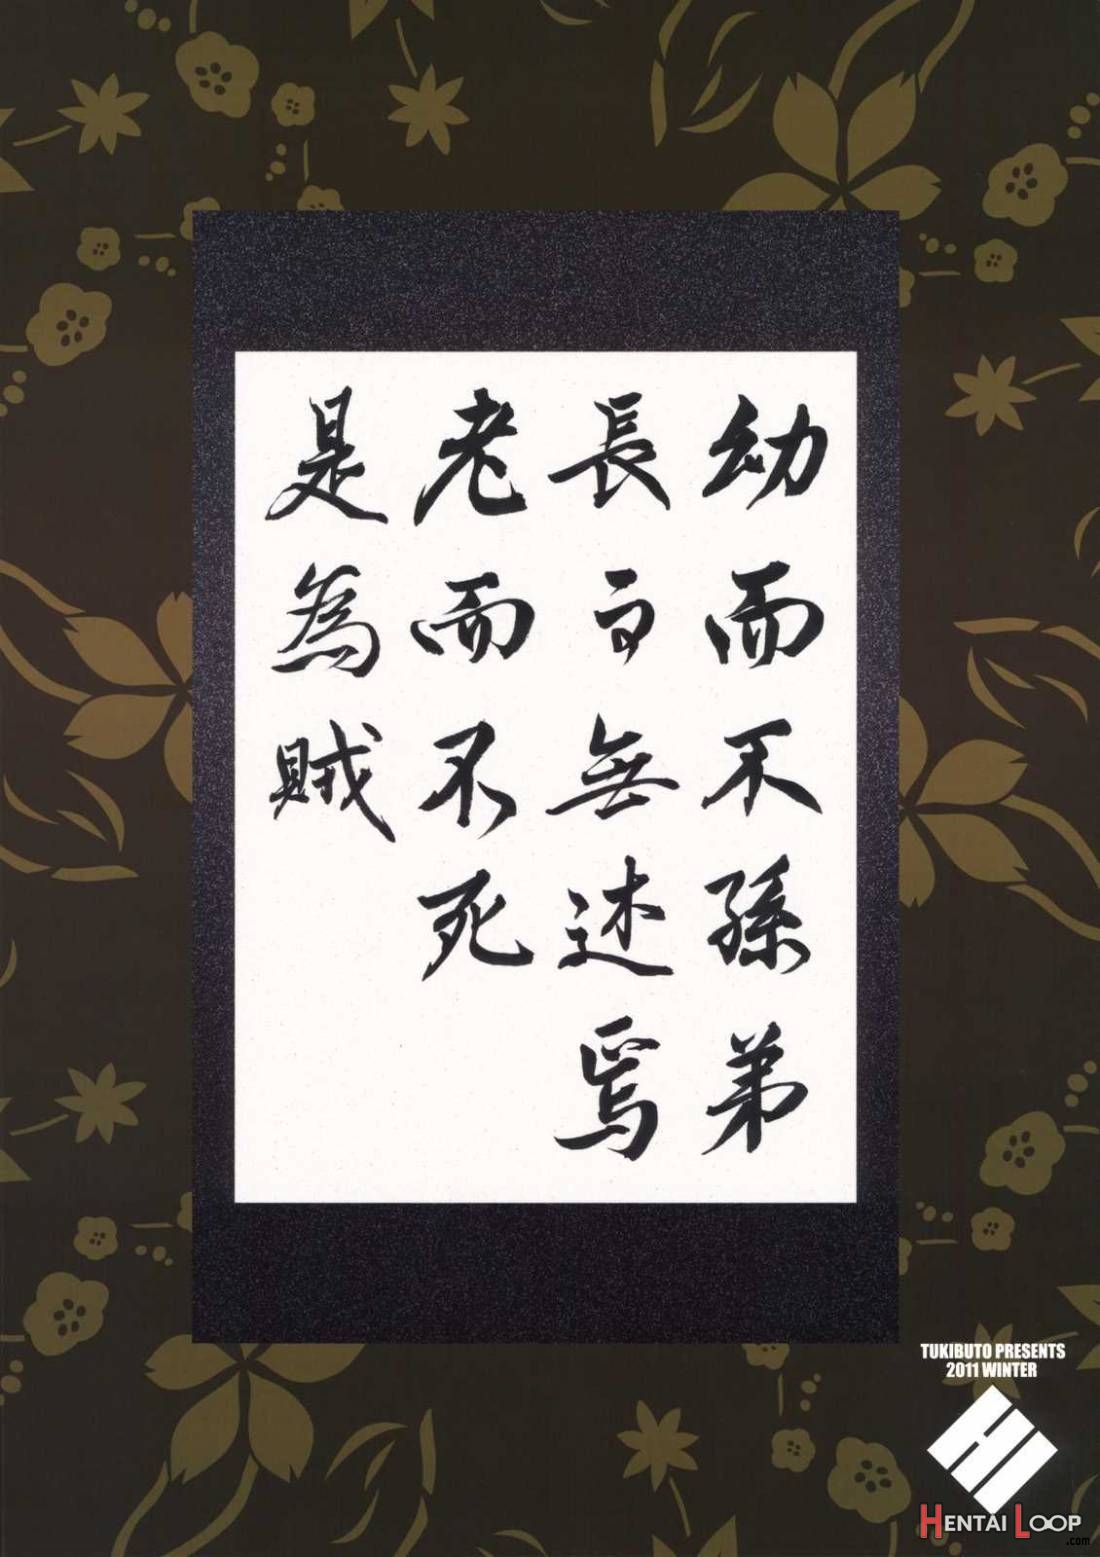 幼而不孫弟
長而無述焉
老而不死
是為賊
TUKIBUTO PRESENTS
2011 WINTER
HI
HENTAI LOOP
.com